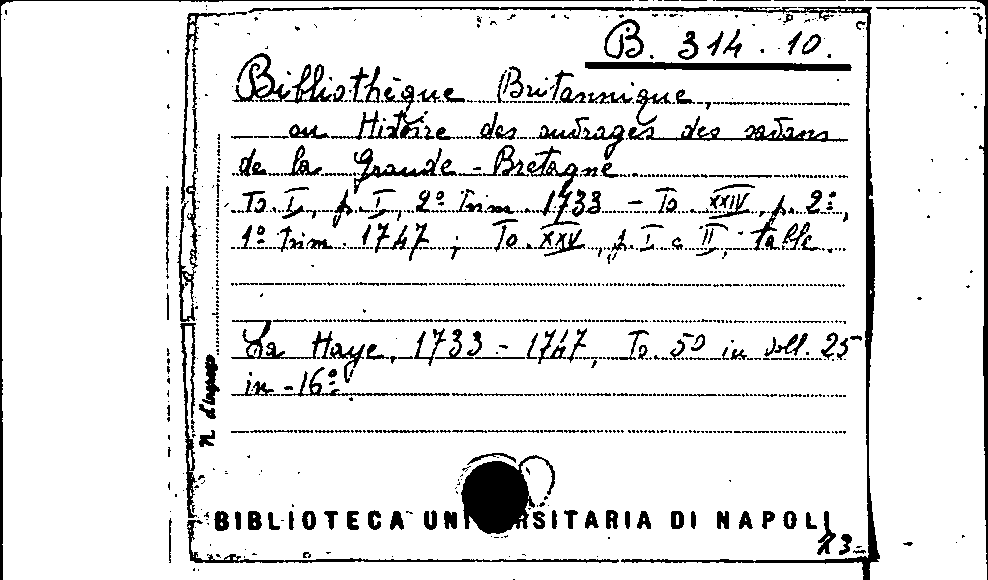 B. 314.10.
Bibliothèque Britannique,
ou Histoire des ouvrages des savans
de la Grande-Bretagne.
To. I, p. I, 2º Trim. 1733 - To. XXIV, p. 2ª,
1º Trim. 1747; To. XXV, p. I e II, table.
La Haye, 1733-1747, To. 50 in voll. 25
in-16º.
N. d'ingresso
BIBLIOTECA UNI RSITARIA DI NAPOLI